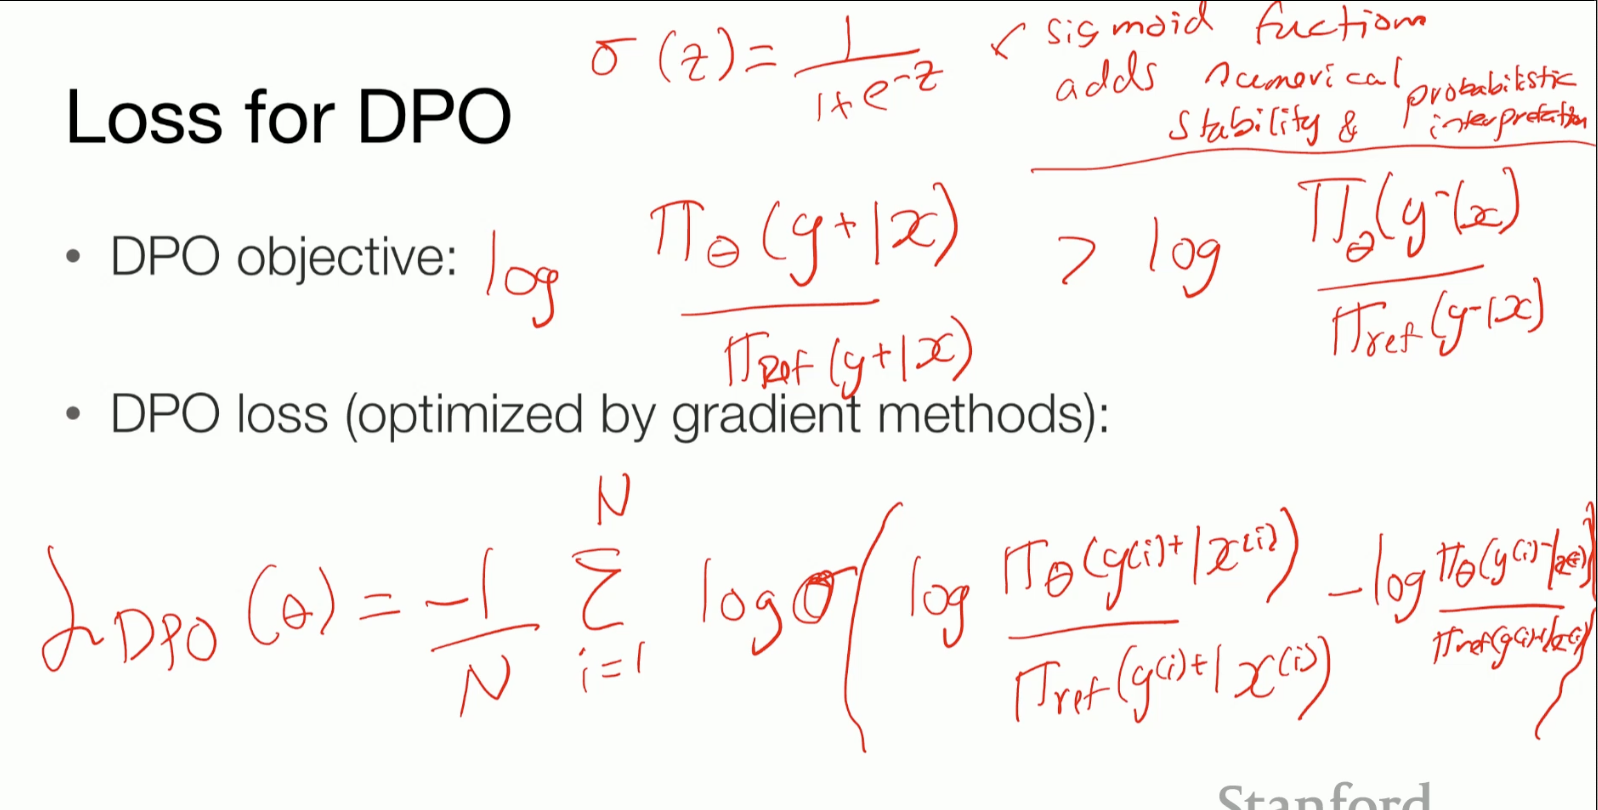 σ(z) = 1 / (1 + e^-z) ← sigmoid fuction
adds numerical
stability & probabilistic interpretation
Loss for DPO
• DPO objective: log πθ(y+|x) / πRef(y+|x) > log πθ(y-|x) / πref(y-|x)
• DPO loss (optimized by gradient methods):
L DPO (θ) = -1/N Σ i=1 N log σ( log πθ(y(i)+|x(i)) / πref(y(i)+|x(i)) - log πθ(y(i)-|x(i)) / πref(y(i)+|x(i)) )
Stanford